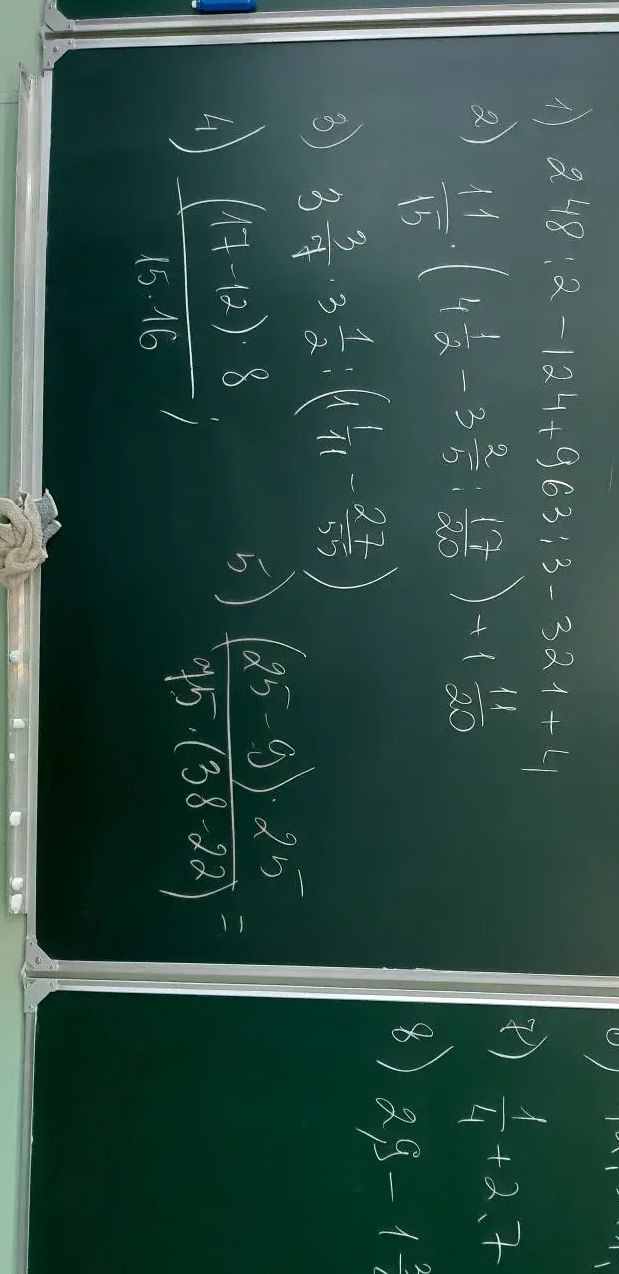 1) 248 : 2 - 124 + 963 : 3 - 321 + 4
2) 11/15 · (4 1/2 - 3 2/5 : 17/20) + 1 11/20
3) 3 3/7 · 3 1/2 : (1 1/11 - 27/55)
4) (17-12) · 8 / 15 · 16 ;
5) (25-9) · 25 / 75 · (38-22) =
7) 1/4 + 2,7
8) 2,9 - 1